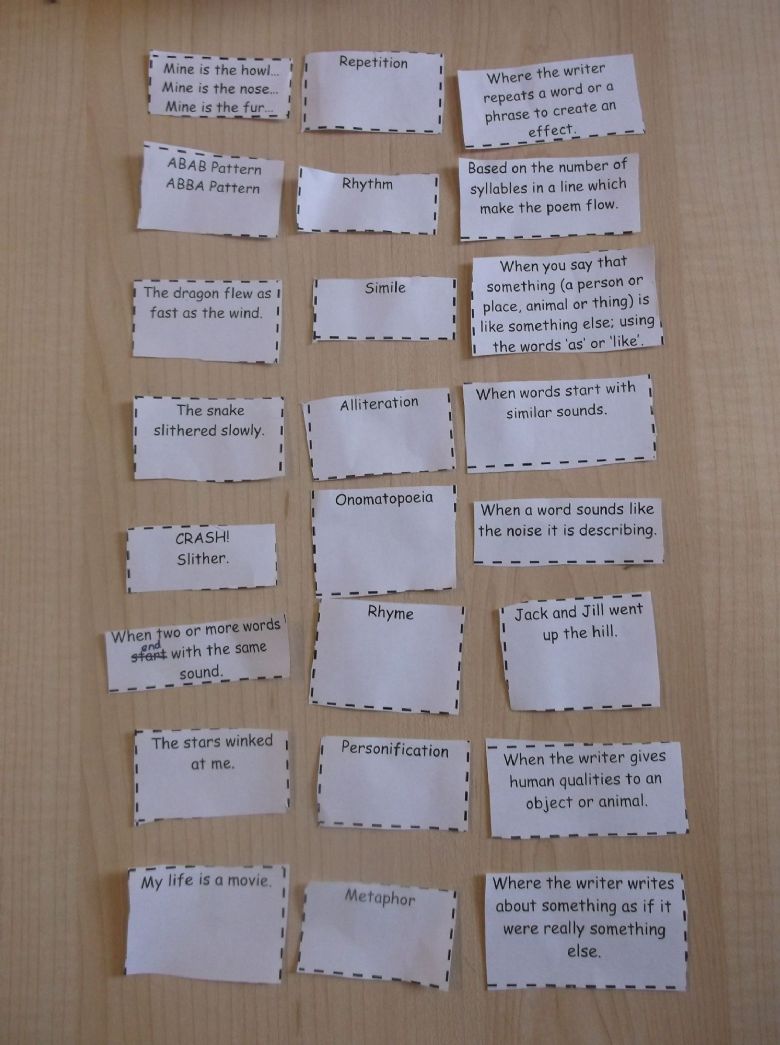 Mine is the howl…
Mine is the nose…
Mine is the fur…
Repetition
Where the writer
repeats a word or a
phrase to create an
effect.
ABAB Pattern
ABBA Pattern
Rhythm
Based on the number of
syllables in a line which
make the poem flow.
The dragon flew as
fast as the wind.
Simile
When you say that
something (a person or
place, animal or thing) is
like something else; using
the words 'as' or 'like'.
The snake
slithered slowly.
Alliteration
When words start with
similar sounds.
CRASH!
Slither.
Onomatopoeia
When a word sounds like
the noise it is describing.
When two or more words
end
start with the same
sound.
Rhyme
Jack and Jill went
up the hill.
The stars winked
at me.
Personification
When the writer gives
human qualities to an
object or animal.
My life is a movie.
Metaphor
Where the writer writes
about something as if it
were really something
else.